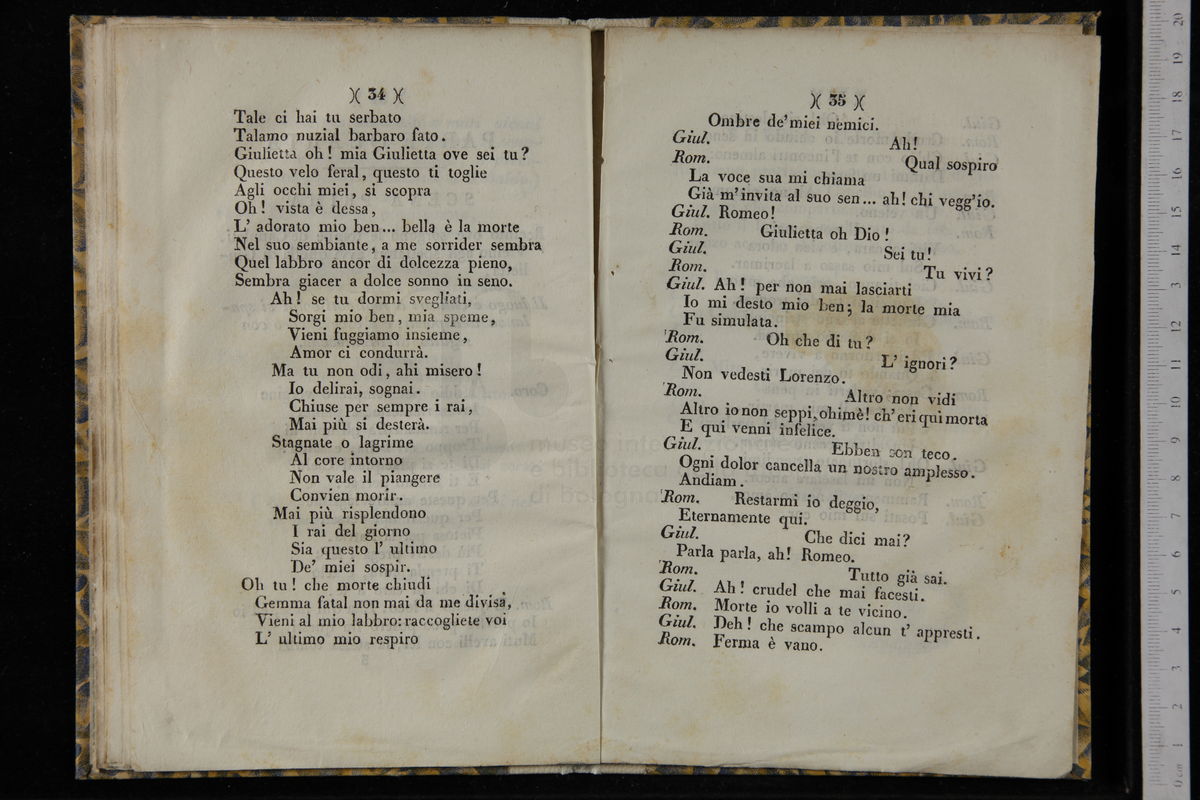 )( 34 )(
Tale ci hai tu serbato
Talamo nuzial barbaro fato.
Giulietta oh! mia Giulietta ove sei tu?
Questo velo feral, questo ti toglie
Agli occhi miei, si scopra
Oh! vista è dessa,
L' adorato mio ben... bella è la morte
Nel suo sembiante, a me sorrider sembra
Quel labbro ancor di dolcezza pieno,
Sembra giacer a dolce sonno in seno.
Ah! se tu dormi svegliati,
Sorgi mio ben, mia speme,
Vieni fuggiamo insieme,
Amor ci condurrà.
Ma tu non odi, ahi misero!
Io delirai, sognai.
Chiuse per sempre i rai,
Mai più si desterà.
Stagnate o lagrime
Al core intorno
Non vale il piangere
Convien morir.
Mai più risplendono
I rai del giorno
Sia questo l' ultimo
De' miei sospir.
Oh tu! che morte chiudi
Gemma fatal non mai da me divisa,
Vieni al mio labbro: raccogliete voi
L' ultimo mio respiro
)( 35 )(
Ombre de' miei nemici.
Giul. Ah!
Rom. Qual sospiro
La voce sua mi chiama
Già m'invita al suo sen... ah! chi vegg'io.
Giul. Romeo!
Rom. Giulietta oh Dio!
Giul. Sei tu!
Rom. Tu vivi?
Giul. Ah! per non mai lasciarti
Io mi desto mio ben; la morte mia
Fu simulata.
Rom. Oh che di tu?
Giul. L' ignori?
Non vedesti Lorenzo.
Rom. Altro non vidi
Altro io non seppi, ohimè! ch' eri qui morta
E qui venni infelice.
Giul. Ebben son teco.
Ogni dolor cancella un nostro amplesso.
Andiam.
Rom. Restarmi io deggio,
Eternamente qui.
Giul. Che dici mai?
Parla parla, ah! Romeo.
Rom. Tutto già sai.
Giul. Ah! crudel che mai facesti.
Rom. Morte io volli a te vicino.
Giul. Deh! che scampo alcun t' appresti.
Rom. Ferma è vano.